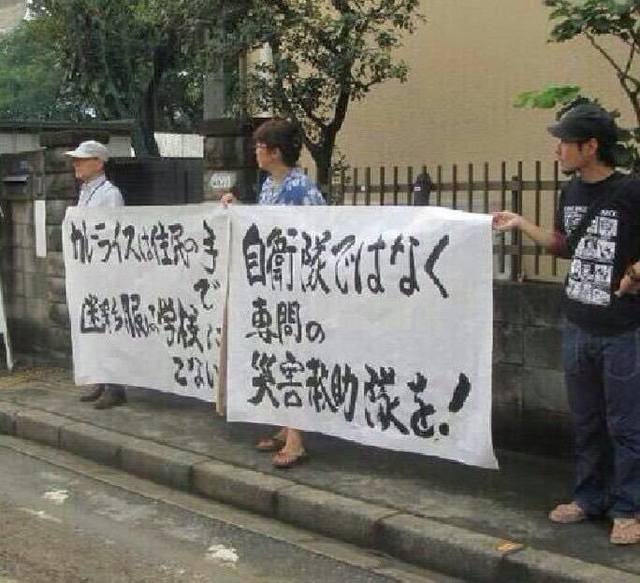 カレーライスは住民の手
で
迷彩服は学校に
こない
自衛隊ではなく
専門の
災害救助隊を!